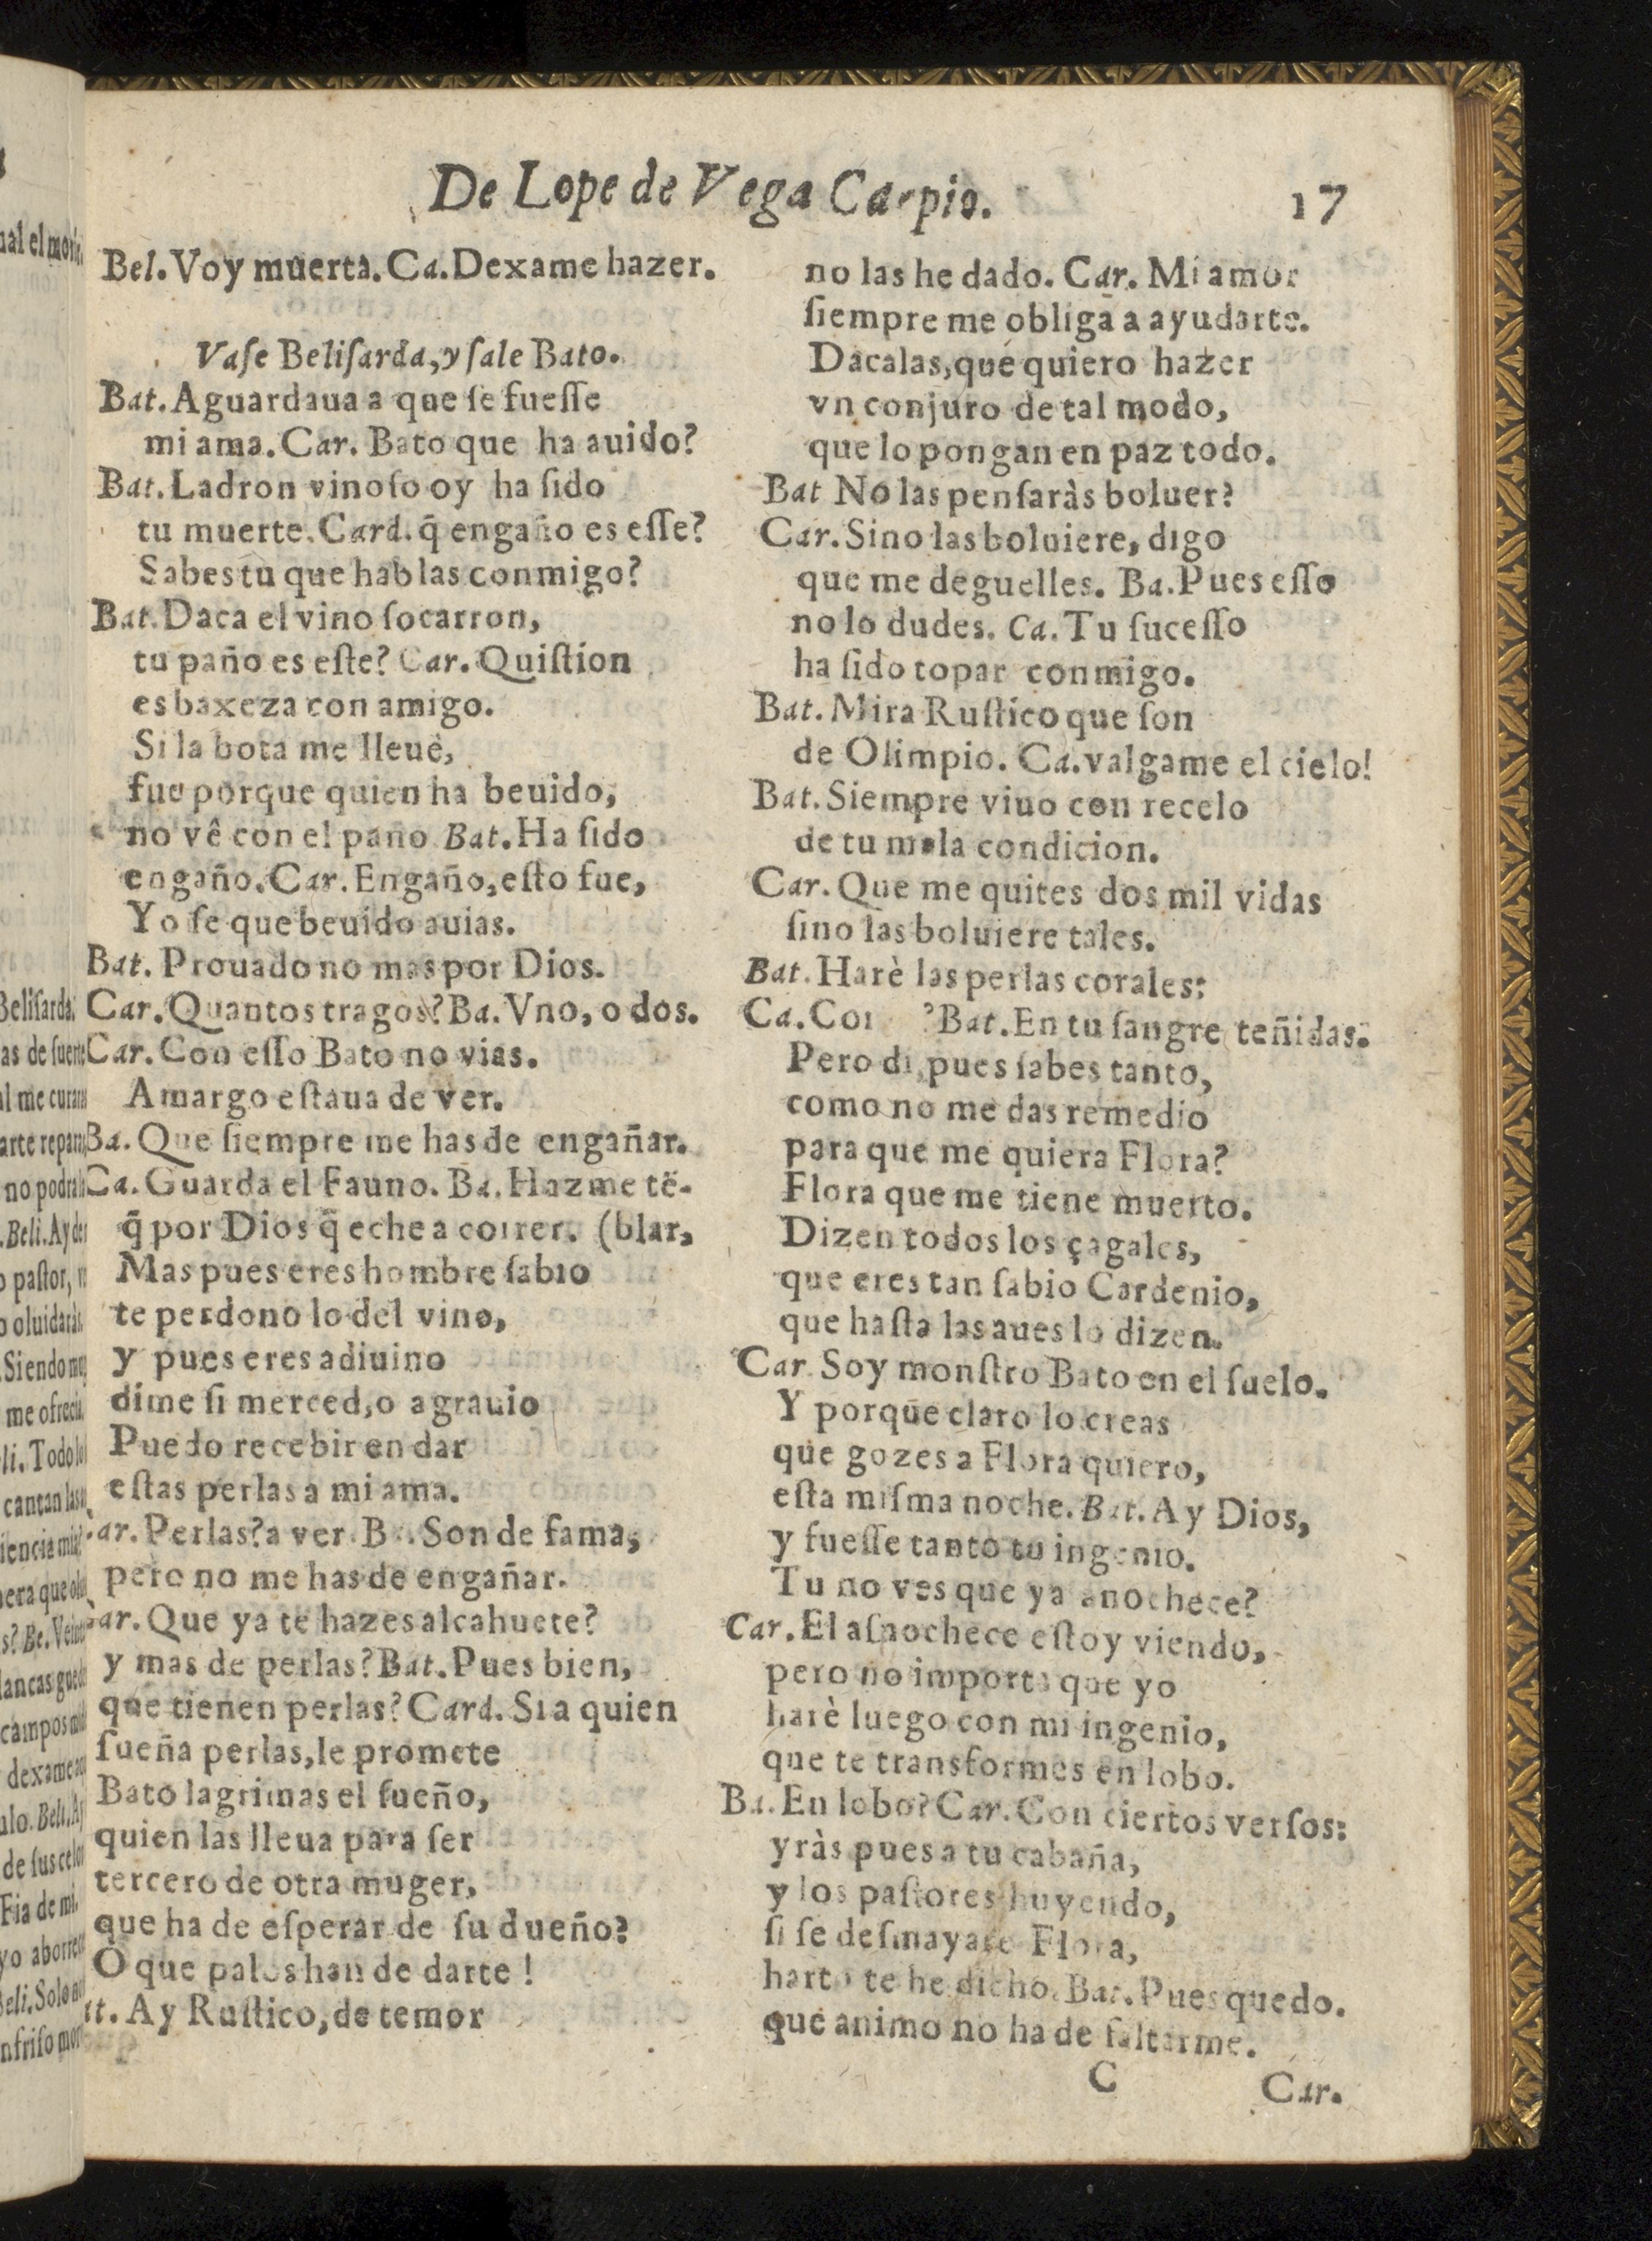 De Lope de Vega Carpio. 17
Bel. Voy muerta. Ca. Dexame hazer.
Vaſe Beliſarda, y ſale Bato.
Bat. Aguardaua a que ſe fueſſe
mi ama. Car. Bato que ha auido?
Bat. Ladron vinoſo oy ha ſido
tu muerte. Card. q̃ engaño es eſſe?
Sabes tu que hablas conmigo?
Bat. Daca el vino ſocarron,
tu paño es eſte? Car. Quiſtion
es baxeza con amigo.
Si la bota me lleuè,
fue porque quien ha beuido,
no vê con el paño Bat. Ha ſido
engaño. Car. Engaño, eſto fue,
Yo ſe que beuido auias.
Bat. Prouado no mas por Dios.
Car. Quantos tragos? Ba. Vno, o dos.
Car. Con eſſo Bato no vias.
Amargo eſtaua de ver.
Ba. Que ſiempre me has de engañar.
Ca. Guarda el Fauno. Ba. Hazme tẽ-
q̃ por Dios q̃ eche a correr. (blar,
Mas pues eres hombre ſabio
te perdono lo del vino,
y pues eres adiuino
dime ſi merced, o agrauio
Puedo recebir en dar
eſtas perlas a mi ama.
ar. Perlas? a ver. Ba. Son de fama,
pero no me has de engañar.
ar. Que ya te hazes alcahuete?
y mas de perlas? Bat. Pues bien,
que tienen perlas? Card. Si a quien
ſueña perlas, le promete
Bato lagrimas el ſueño,
quien las lleua para ſer
tercero de otra muger,
que ha de eſperar de ſu dueño?
O que palos han de darte!
at. Ay Ruſtico, de temor
no las he dado. Car. Mi amor
ſiempre me obliga a ayudarte.
Dacalas, que quiero hazer
vn conjuro de tal modo,
que lo pongan en paz todo.
Bat No las penſaràs boluer?
Car. Sino las boluiere, digo
que me deguelles. Ba. Pues eſſo
no lo dudes. Ca. Tu ſuceſſo
ha ſido topar conmigo.
Bat. Mira Ruſtico que ſon
de Olimpio. Ca. valgame el cielo!
Bat. Siempre viuo con recelo
de tu mala condicion.
Car. Que me quites dos mil vidas
ſino las boluiere tales.
Bat. Harè las perlas corales:
Ca. Co ? Bat. En tu ſangre teñidas.
Pero di, pues ſabes tanto,
como no me das remedio
para que me quiera Flora?
Flora que me tiene muerto.
Dizen todos los çagales,
que eres tan ſabio Cardenio,
que haſta las aues lo dizen.
Car. Soy monſtro Bato en el ſuelo.
Y porque claro lo creas
que gozes a Flora quiero,
eſta miſma noche. Bat. Ay Dios,
y fueſſe tanto tu ingenio.
Tu no ves que ya anochece?
Car. El aſnochece eſtoy viendo,
pero no importa que yo
harè luego con mi ingenio,
que te transformes en lobo.
Ba. En lobo? Car. Con ciertos verſos:
yràs pues a tu cabaña,
y los paſtores huyendo,
ſi ſe deſmayare Flora,
harto te he dicho. Bat. Pues quedo.
que animo no ha de faltarme.
C Car.